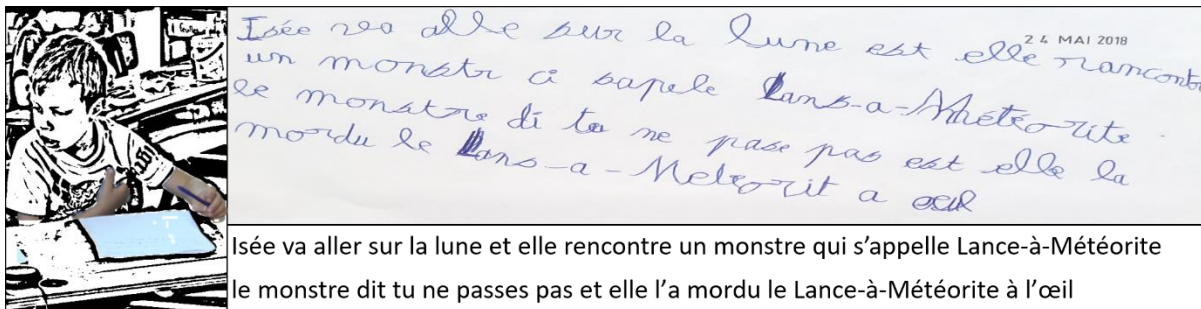 Isée va alle sur la lune est elle rancontre
24 MAI 2018
un monstr ci sapele Lans-a-Météorite
le monstre di tu ne pase pas est elle la
mordu le Lans-a-Meteorit a œul
Isée va aller sur la lune et elle rencontre un monstre qui s'appelle Lance-à-Météorite
le monstre dit tu ne passes pas et elle l'a mordu le Lance-à-Météorite à l'œil